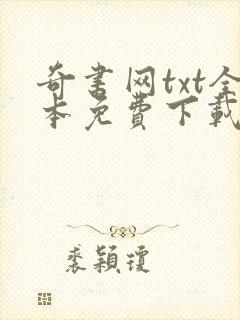 奇書网txt全
本免費下載
裘穎瓊